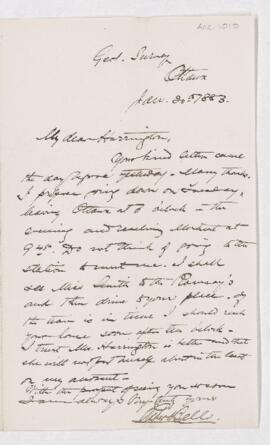 Acc. 1010
Geol. Survey
Ottawa
Jan. 30th 1883.
My dear Harrington,
Your kind letter came
the day before yesterday - Many thanks.
I propose going down on Tuesday,
leaving Ottawa at 5 o'clock in the
evening and reaching Montreal at
9.45. Do not think of going to the
station to meet me. I shall
see Miss Smith to the Ramsay's
and then drive to your place. If
the train is in time I should reach
your home soon after the o'clock.
I trust Mrs. Harrington is better and that
she will not put herself about in the least
on my account.
With the prospect of seeing you so soon
I am always Very truly yours
Robert Bell